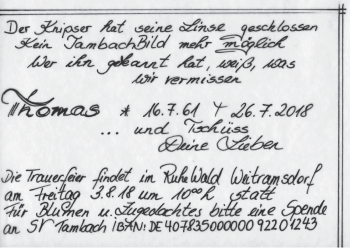 Der Knipser hat seine Linse geschlossen
Kein TambachBild mehr möglich
Wer ihn gekannt hat, weiß, was
wir vermissen
Thomas * 16.7.61 + 26.7.2018
... und Tschüss
Deine Lieben
Die Trauerfeier findet im RuheWald Weitramsdorf
am Freitag 3.8.18 um 10ºº h statt
Für Blumen u. Zugedachtes bitte eine Spende
an SV Tambach iBAN: DE 407835000000 92201243